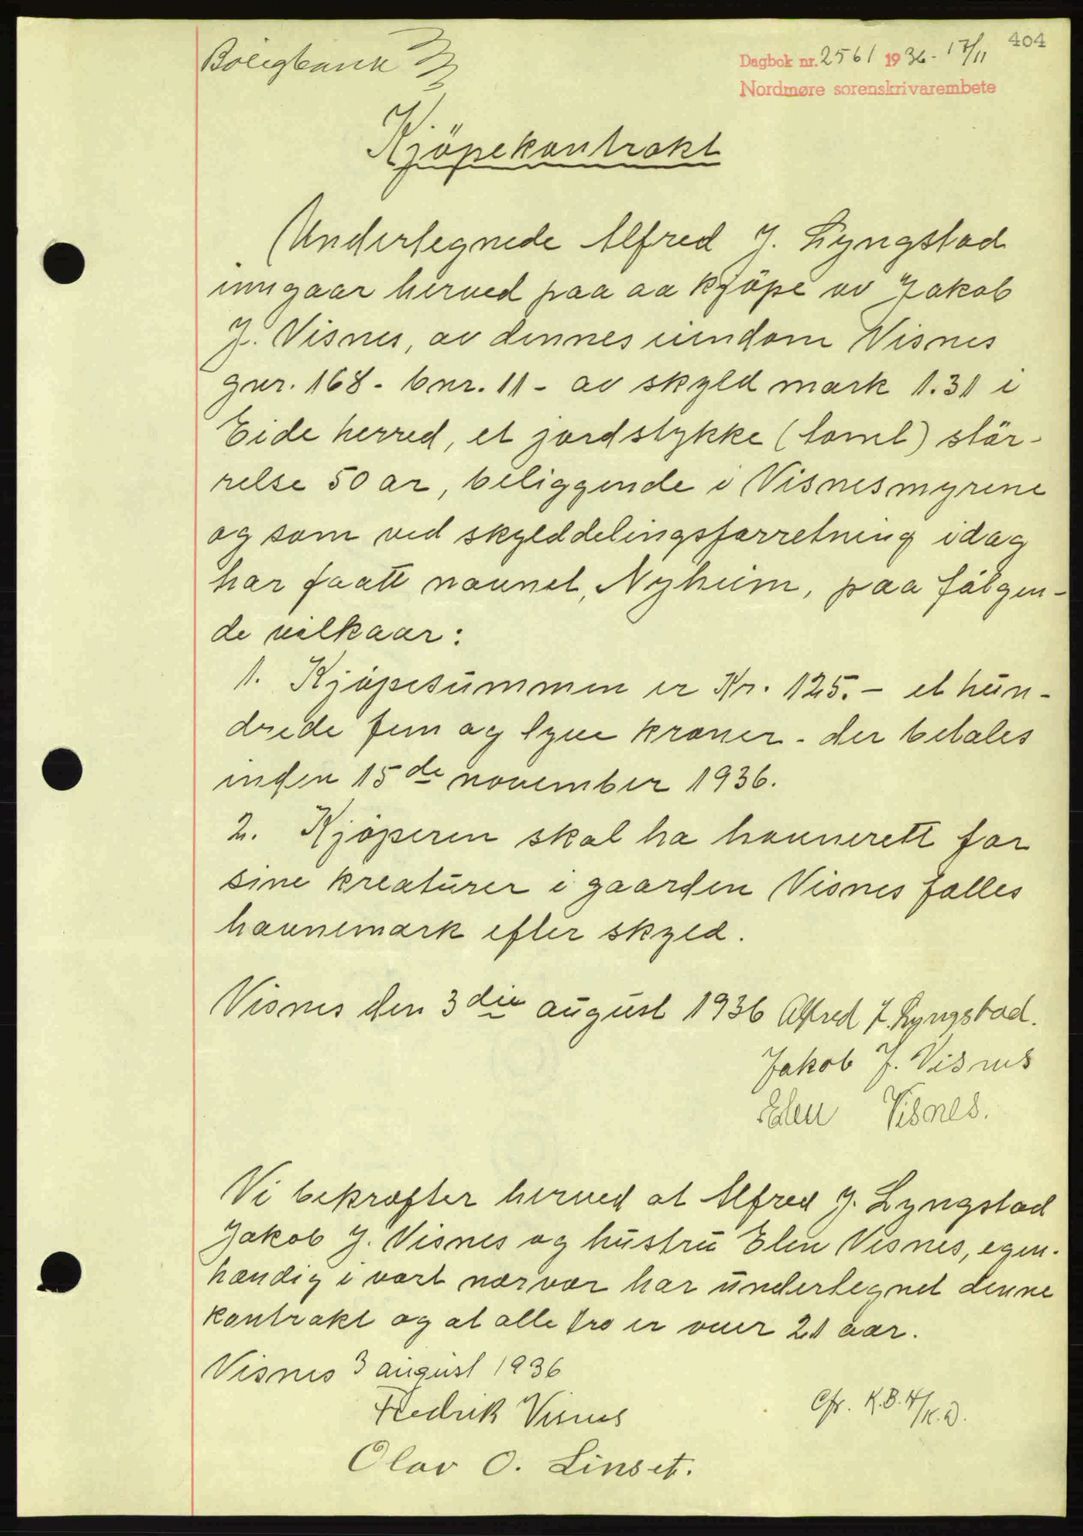 404
Boligbank
Dagbok nr. 2561 1936 - 17/11
Nordmøre sorenskrivarembete
Kjöpekontrakt
Undertegnede Alfred J. Lyngstad
inngaar herved paa aa kjöpe av Jakob
J. Visnes, av dennes eiendom Visnes
gnr. 168 - bnr. 11 - av skyld mark 1.31 i
Eide herred, et jordstykke (tomt) stör-
relse 50 ar, beliggende i Visnesmyrene
og som ved skylddelingsforretning idag
har faatt navnet, Nyheim, paa fölgen-
de vilkaar:
1. Kjöpesummen er Kr. 125.- et hun-
drede fem og tyve kroner - der betales
inden 15de november 1936.
2. Kjöperen skal ha havnerett for
sine kreaturer i gaarden Visnes felles
havnemark efter skyld.
Visnes den 3die august 1936 Alfred J. Lyngstad.
Jakob J. Visnes
Elen Visnes.
Vi bekræfter herved at Alfred J. Lyngstad
Jakob J. Visnes og hustru Elen Visnes, egen-
hændig i vort nærvær har undertegnet denne
kontrakt og at alle tre er over 21 aar.
Visnes 3 august 1936
Fredrik Visnes
Cfr. K.B.
Olav O. Linset.